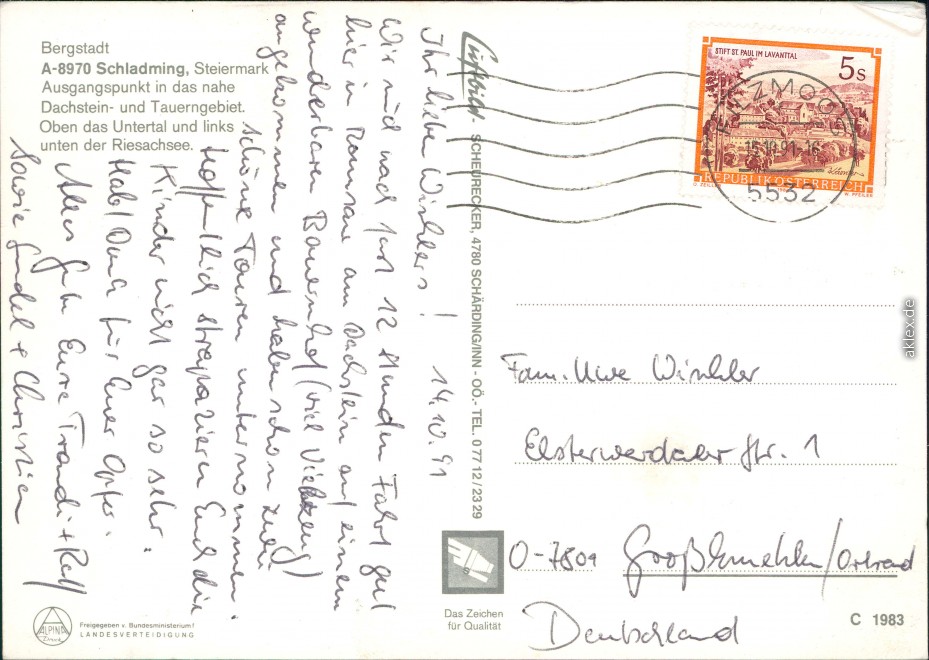 Bergstadt
A-8970 Schladming, Steiermark
Ausgangspunkt in das nahe
Dachstein- und Tauerngebiet.
Oben das Untertal und links
unten der Riesachsee.
14.10.91
Ihr lieben Winklers!
Wir sind nach fast 12 Stunden Fahrt gut
hier in Ramsau am Dachstein auf einem
wunderbaren Bauernhof (viel Viehzeug)
angekommen und haben schon zwei
schöne Touren unternommen.
Hoffentlich strapazieren Euch die
Kinder nicht gar so sehr.
Habt Dank für Euer Opfer.
Alles Gute Eure Traudi + Rolf
Sowie Gundel + Christian
Luftbild - SCHEURECKER, 4780 SCHÄRDING/INN - OÖ. TEL. 07712/2329
STIFT ST. PAUL IM LAVANTTAL
5 S
REPUBLIK ÖSTERREICH
O. ZEILLER
W. PFEILER
FILZMOOS
15.10.91-16
5532
Fam. Uwe Winkler
Elsterwerdaer Str. 1
O-7801 Großkmehlen/Ortrand
Deutschland
Das Zeichen
für Qualität
ALPINA
Druck
Freigegeben v. Bundesministerium f.
LANDESVERTEIDIGUNG
C 1983
aklex.de